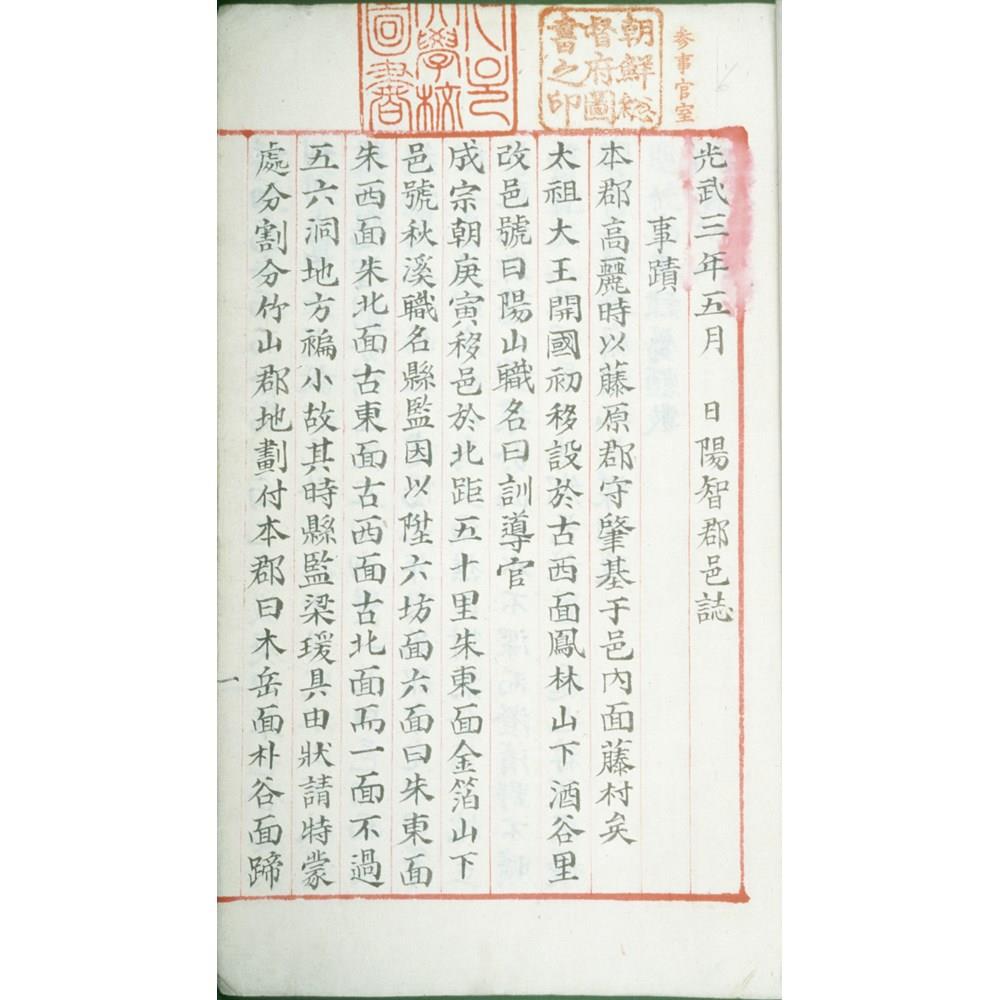 參事官室
朝鮮總
督府圖
書之印
大學校
圖書
光武三年五月　日陽智郡邑誌
事蹟
本郡高麗時以藤原郡守肇基于邑內面藤村矣
太祖大王開國初移設於古西面鳳林山下酒谷里
改邑號曰陽山職名曰訓導官
成宗朝庚寅移邑於北距五十里朱東面金箔山下
邑號秋溪職名縣監因以陞六坊面六面曰朱東面
朱西面朱北面古東面古西面古北面而一面不過
五六洞地方褊小故其時縣監梁瑗具由狀請特蒙
處分割分竹山郡地劃付本郡曰木岳面朴谷面蹄
一